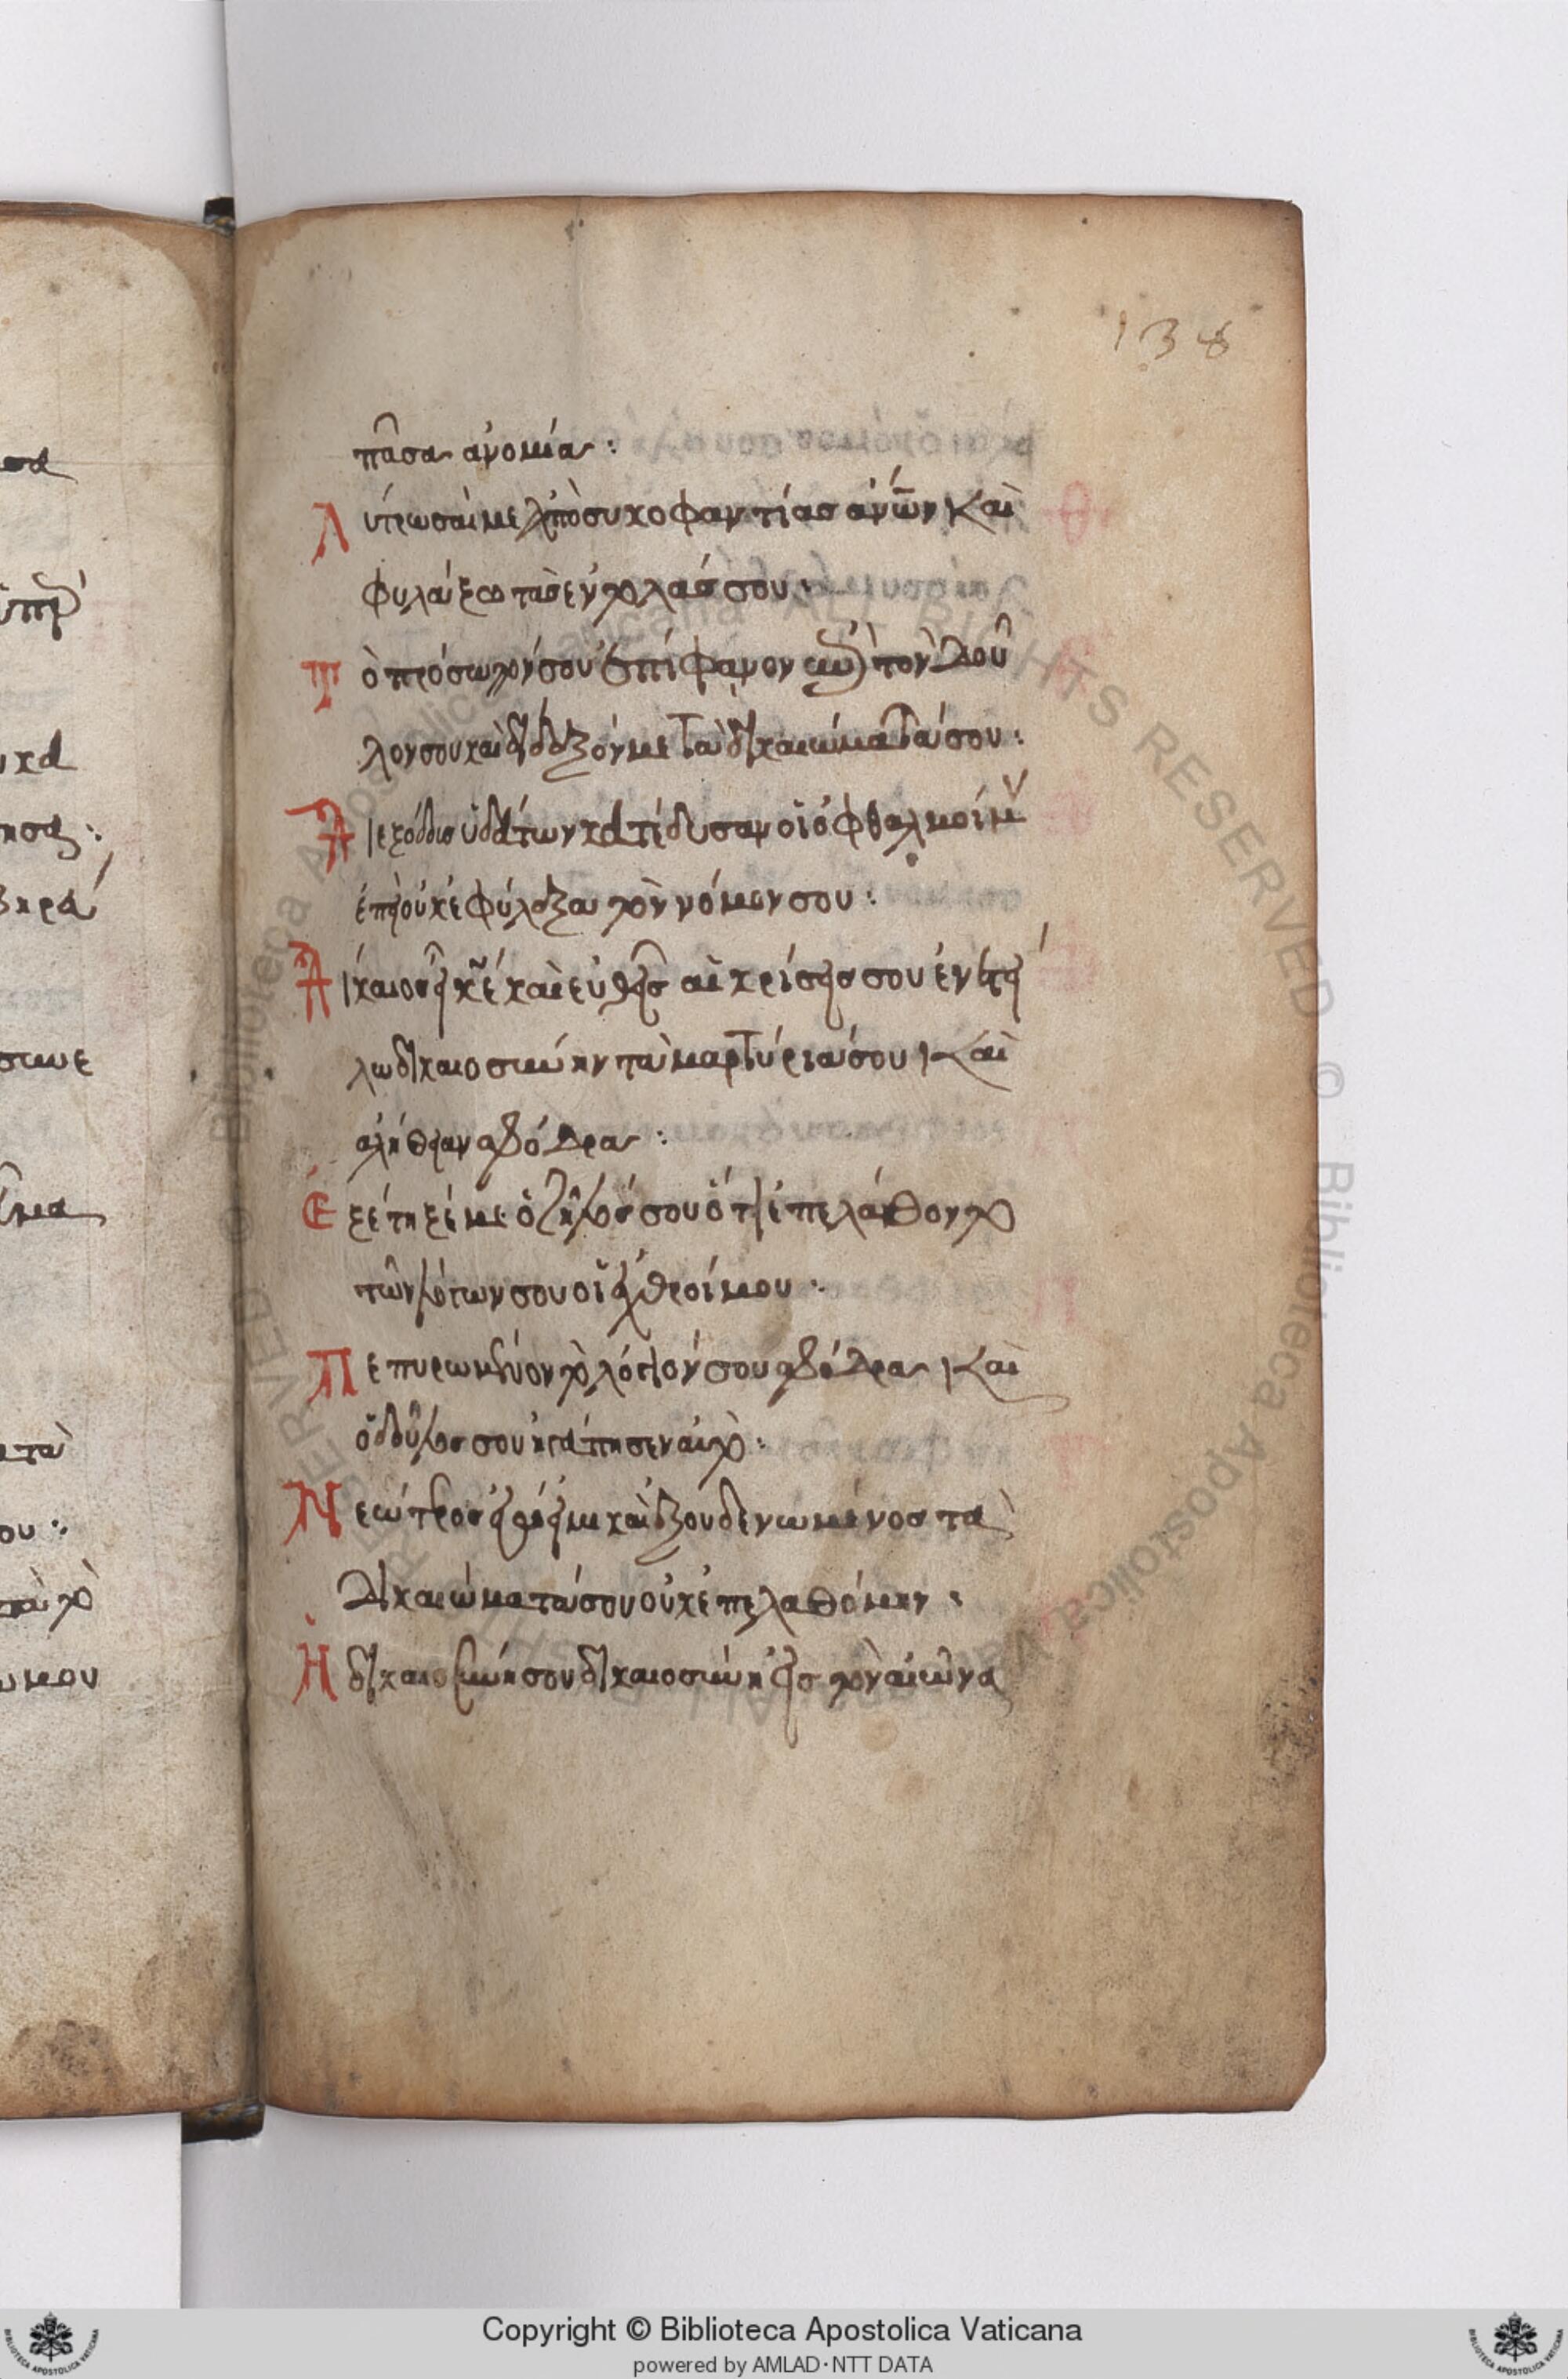 138
πᾶσα ἀνομία :
Λύτρωσαί με ἀπὸ συκοφαντίας ἀνων καὶ
φυλάξω τὰς ἐντολάς σου :
Τὸ πρόσωπόν σου ἐπίφανον ἐπὶ τὸν δοῦ
λον σου καὶ δίδαξόν με τὰ δικαιώματά σου :
Διεξόδους ὑδάτων κατέδυσαν οἱ ὀφθαλμοί μου
ἐπεὶ οὐκ ἐφύλαξα τὸν νόμον σου :
Δίκαιος εἶ κε καὶ εὐθεῖς αἱ κρίσεις σου ἐνετεί
λω δικαιοσύνην τὰ μαρτύριά σου καὶ
ἀλήθειαν σφόδρα :
Ἐξέτηξέ με ὁ ζῆλός σου ὅτι ἐπελάθοντο
τῶν λόγων σου οἱ ἐχθροί μου :
Πεπυρωμένον τὸ λόγιόν σου σφόδρα καὶ
ὁ δοῦλος σου ἠγάπησεν αὐτό :
Νεώτερος ἐγώ εἰμι καὶ ἐξουδενωμένος τὰ
δικαιώματά σου οὐκ ἐπελαθόμην :
Ἡ δικαιοσύνη σου δικαιοσύνη εἰς τὸν αἰῶνα
Copyright © Biblioteca Apostolica Vaticana
powered by AMLAD·NTT DATA